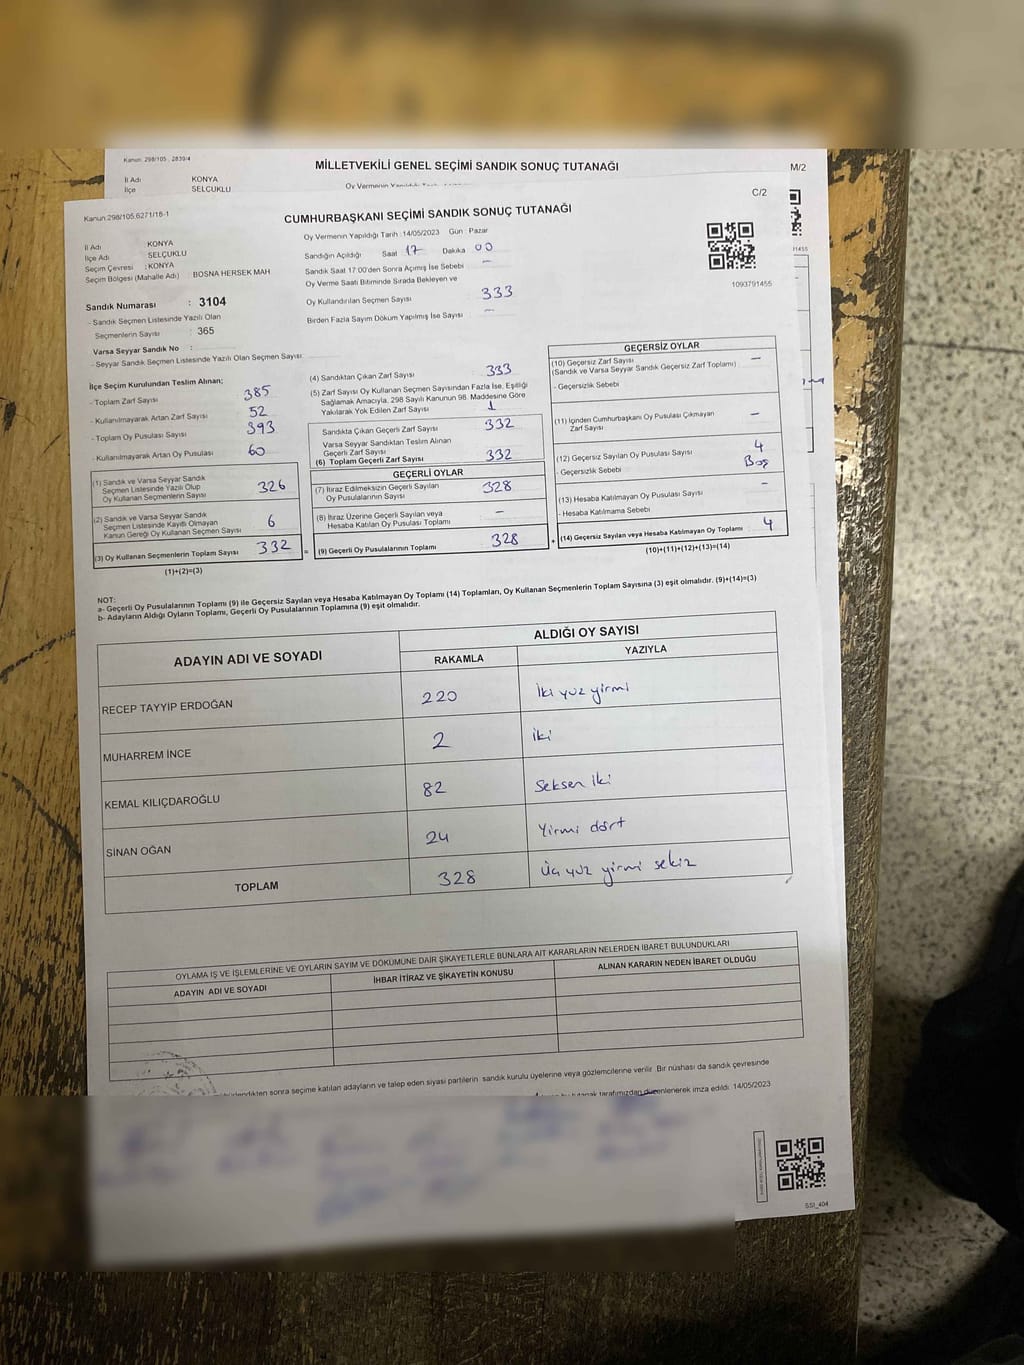 Kanun: 298/105 , 2839/4
MİLLETVEKİLİ GENEL SEÇİMİ SANDIK SONUÇ TUTANAĞI
M/2
İl Adı KONYA
İlçe SELÇUKLU
Oy Vermenin
C/2
Kanun:298/105,6271/18-1
CUMHURBAŞKANI SEÇİMİ SANDIK SONUÇ TUTANAĞI
Oy Vermenin Yapıldığı Tarih : 14/05/2023 Gün : Pazar
İl Adı KONYA
İlçe Adı SELÇUKLU
Seçim Çevresi : KONYA
Seçim Bölgesi (Mahalle Adı) : BOSNA HERSEK MAH
Sandığın Açıldığı Saat 17 Dakika 00
Sandık Saat 17:00'den Sonra Açımış İse Sebebi –
Oy Verme Saati Bitiminde Sırada Bekleyen ve
Oy Kullandırılan Seçmen Sayısı 333
Birden Fazla Sayım Döküm Yapılmış İse Sayısı –
1093791455
Sandık Numarası : 3104
- Sandık Seçmen Listesinde Yazılı Olan
Seçmenlerin Sayısı : 365
Varsa Seyyar Sandık No :
- Seyyar Sandık Seçmen Listesinde Yazılı Olan Seçmen Sayısı:
İlçe Seçim Kurulundan Teslim Alınan;
- Toplam Zarf Sayısı 385
- Kullanılmayarak Artan Zarf Sayısı 52
- Toplam Oy Pusulası Sayısı 393
- Kullanılmayarak Artan Oy Pusulası 60
(1) Sandık ve Varsa Seyyar Sandık
Seçmen Listesinde Yazılı Olup
Oy Kullanan Seçmenlerin Sayısı 326
(2) Sandık ve Varsa Seyyar Sandık
Seçmen Listesinde Kayıtlı Olmayan
Kanun Gereği Oy Kullanan Seçmen Sayısı 6
(3) Oy Kullanan Seçmenlerin Toplam Sayısı 332
(1)+(2)=(3)
(4) Sandıktan Çıkan Zarf Sayısı 333
(5) Zarf Sayısı Oy Kullanan Seçmen Sayısından Fazla İse, Eşitliği
Sağlamak Amacıyla, 298 Sayılı Kanunun 98. Maddesine Göre
Yakılarak Yok Edilen Zarf Sayısı 1
Sandıkta Çıkan Geçerli Zarf Sayısı 332
Varsa Seyyar Sandıktan Teslim Alınan
Geçerli Zarf Sayısı
(6) Toplam Geçerli Zarf Sayısı 332
GEÇERLİ OYLAR
(7) İtiraz Edilmeksizin Geçerli Sayılan
Oy Pusulalarının Sayısı 328
(8) İtiraz Üzerine Geçerli Sayılan veya
Hesaba Katılan Oy Pusulası Toplamı –
= (9) Geçerli Oy Pusulalarının Toplamı 328
GEÇERSİZ OYLAR
(10) Geçersiz Zarf Sayısı –
(Sandık ve Varsa Seyyar Sandık Geçersiz Zarf Toplamı)
- Geçersizlik Sebebi
(11) İçinden Cumhurbaşkanı Oy Pusulası Çıkmayan
Zarf Sayısı –
(12) Geçersiz Sayılan Oy Pusulası Sayısı 4
- Geçersizlik Sebebi Boş
(13) Hesaba Katılmayan Oy Pusulası Sayısı –
- Hesaba Katılmama Sebebi
+ (14) Geçersiz Sayılan veya Hesaba Katılmayan Oy Toplamı 4
(10)+(11)+(12)+(13)=(14)
NOT:
a- Geçerli Oy Pusulalarının Toplamı (9) ile Geçersiz Sayılan veya Hesaba Katılmayan Oy Toplamı (14) Toplamları, Oy Kullanan Seçmenlerin Toplam Sayısına (3) eşit olmalıdır. (9)+(14)=(3)
b- Adayların Aldığı Oyların Toplamı, Geçerli Oy Pusulalarının Toplamına (9) eşit olmalıdır.
ADAYIN ADI VE SOYADI
ALDIĞI OY SAYISI
RAKAMLA YAZIYLA
RECEP TAYYİP ERDOĞAN 220 İki yüz yirmi
MUHARREM İNCE 2 İki
KEMAL KILIÇDAROĞLU 82 Seksen iki
SİNAN OĞAN 24 Yirmi dört
TOPLAM 328 Üç yüz yirmi sekiz
OYLAMA İŞ VE İŞLEMLERİNE VE OYLARIN SAYIM VE DÖKÜMÜNE DAİR ŞİKAYETLERLE BUNLARA AİT KARARLARIN NELERDEN İBARET BULUNDUKLARI
ADAYIN ADI VE SOYADI İHBAR İTİRAZ VE ŞİKAYETİN KONUSU ALINAN KARARIN NEDEN İBARET OLDUĞU
sonra seçime katılan adayların ve talep eden siyasi partilerin sandık kurulu üyelerine veya gözlemcilerine verilir. Bir nüshası da sandık çevresinde
tutanak tarafımızdan düzenlenerek imza edildi. 14/05/2023
SSI_404